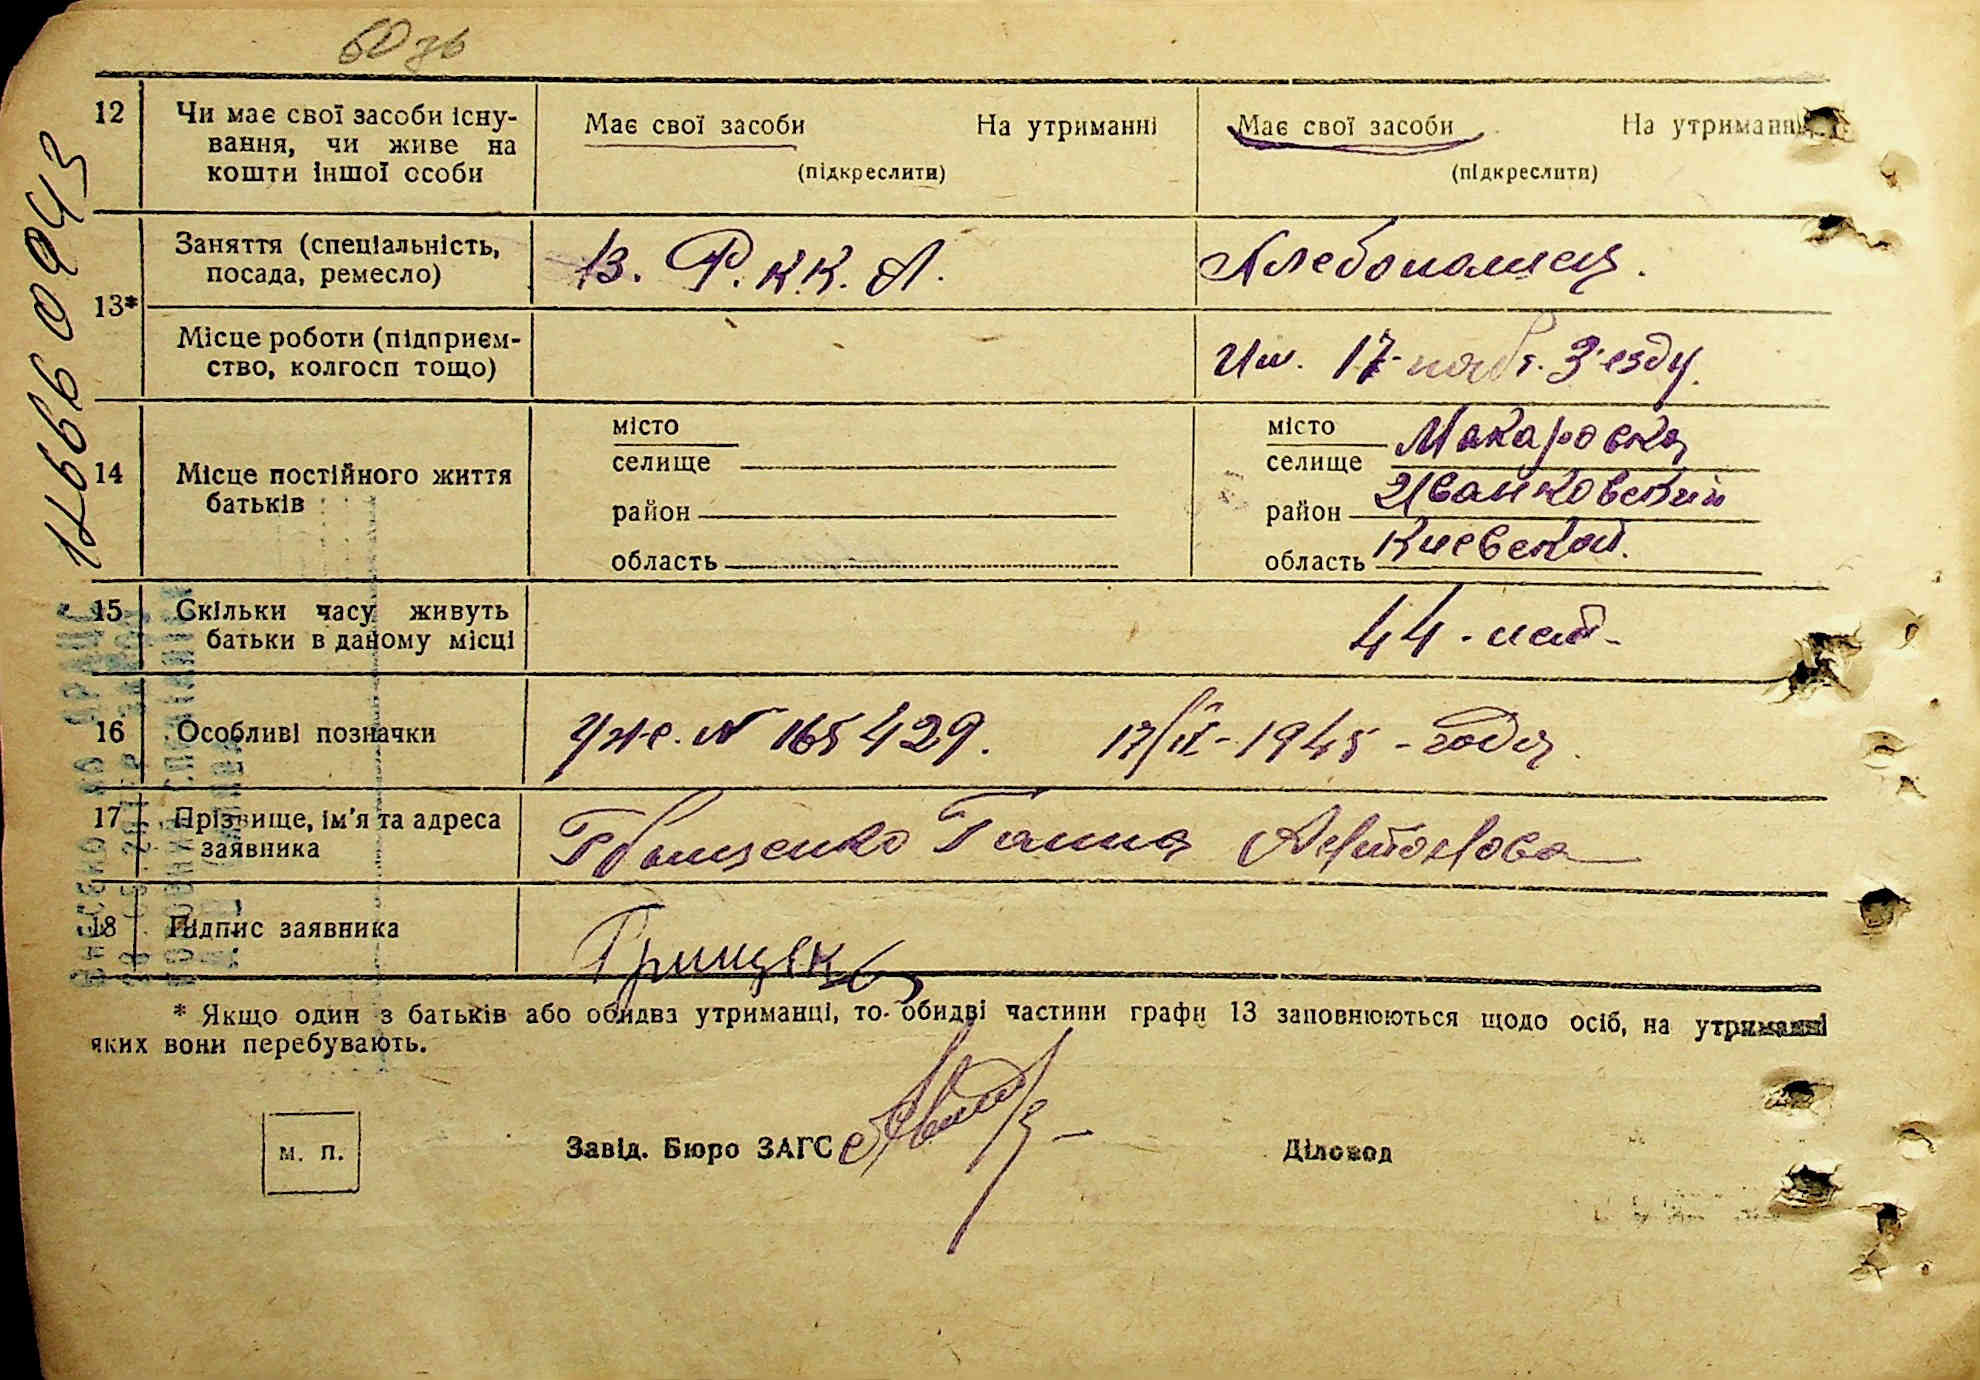 12 Чи має свої засоби існу-
вання, чи живе на
кошти іншої особи
Має свої засоби На утриманні
(підкреслити)
Має свої засоби На утриманні
(підкреслити)
13*
Заняття (спеціальність,
посада, ремесло)
В. Р.К.К.А.
Хлебопашец.
Місце роботи (підприєм-
ство, колгосп тощо)
Им. 17- З'езду.
14 Місце постійного життя
батьків
місто
селище
район
область
місто Макаровка
селище
район Иванковский
область Киевской.
15 Скільки часу живуть
батьки в даному місці
44 - лет -
16 Особливі позначки
N 165429. 1945 - года.
17 Прізвище, ім'я та адреса
заявника
Ганна
18 Підпис заявника
Грищенко
* Якщо один з батьків або обидва утриманці, то обидві частини графи 13 заповнюються щодо осіб, на утриманні
яких вони перебувають.
м. п.
Завід. Бюро ЗАГС
Діловод